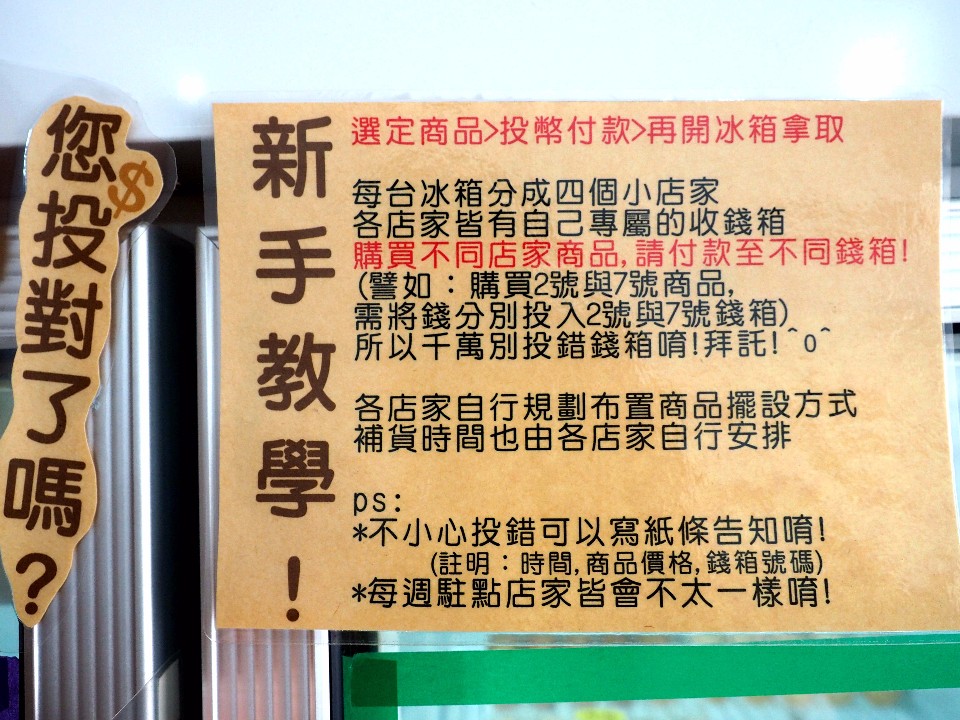 您投對了嗎?
$
新手教學!
選定商品>投幣付款>再開冰箱拿取
每台冰箱分成四個小店家
各店家皆有自己專屬的收錢箱
購買不同店家商品,請付款至不同錢箱!
(譬如：購買2號與7號商品,
需將錢分別投入2號與7號錢箱)
所以千萬別投錯錢箱唷!拜託!^o^
各店家自行規劃布置商品擺設方式
補貨時間也由各店家自行安排
ps:
*不小心投錯可以寫紙條告知唷!
(註明：時間,商品價格,錢箱號碼)
*每週駐點店家皆會不太一樣唷!